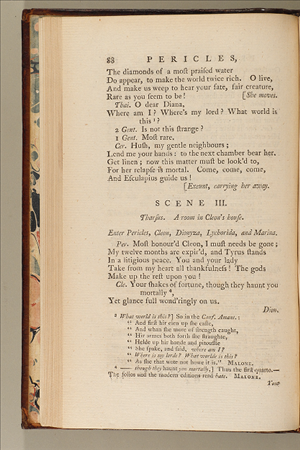 88 PERICLES,
The diamonds of a moſt praiſed water
Do appear, to make the world twice rich. O live,
And make us weep to hear your fate, fair creature,
Rare as you ſeem to be! [She moves.
Thai. O dear Diana,
Where am I? Where's my lord? What world is
this³?
2 Gent. Is not this ſtrange?
1 Gent. Moſt rare.
Cer. Huſh, my gentle neighbours;
Lend me your hands: to the next chamber bear her.
Get linen; now this matter muſt be look'd to,
For her relapſe is mortal. Come, come, come,
And Eſculapius guide us!
[Exeunt, carrying her away.
SCENE III.
Tharſus. A room in Cleon's houſe.
Enter Pericles, Cleon, Dionyza, Lychorida, and Marina.
Per. Moſt honour'd Cleon, I muſt needs be gone;
My twelve months are expir'd, and Tyrus ſtands
In a litigious peace. You and your lady
Take from my heart all thankfulneſs! The gods
Make up the reſt upon you!
Cle. Your ſhakes of fortune, though they haunt you
mortally⁴,
Yet glance full wond'ringly on us.
Dion.
³ What world is this?] So in the Conf. Amant.:
" And firſt hir eien up ſhe caſte,
" And whan ſhe more of ſtrength caught,
" Hir armes both forth ſhe ſtraughte,
" Helde up hir honde and pitouſlie
" She ſpoke, and ſaid, where am I?
" Where is my lorde? What worlde is this?
" As ſhe that wote not howe it is." MALONE.
⁴ —— though they haunt you mortally,] Thus the firſt quarto.—
The folios and the modern editions read hate. MALONE.
Your